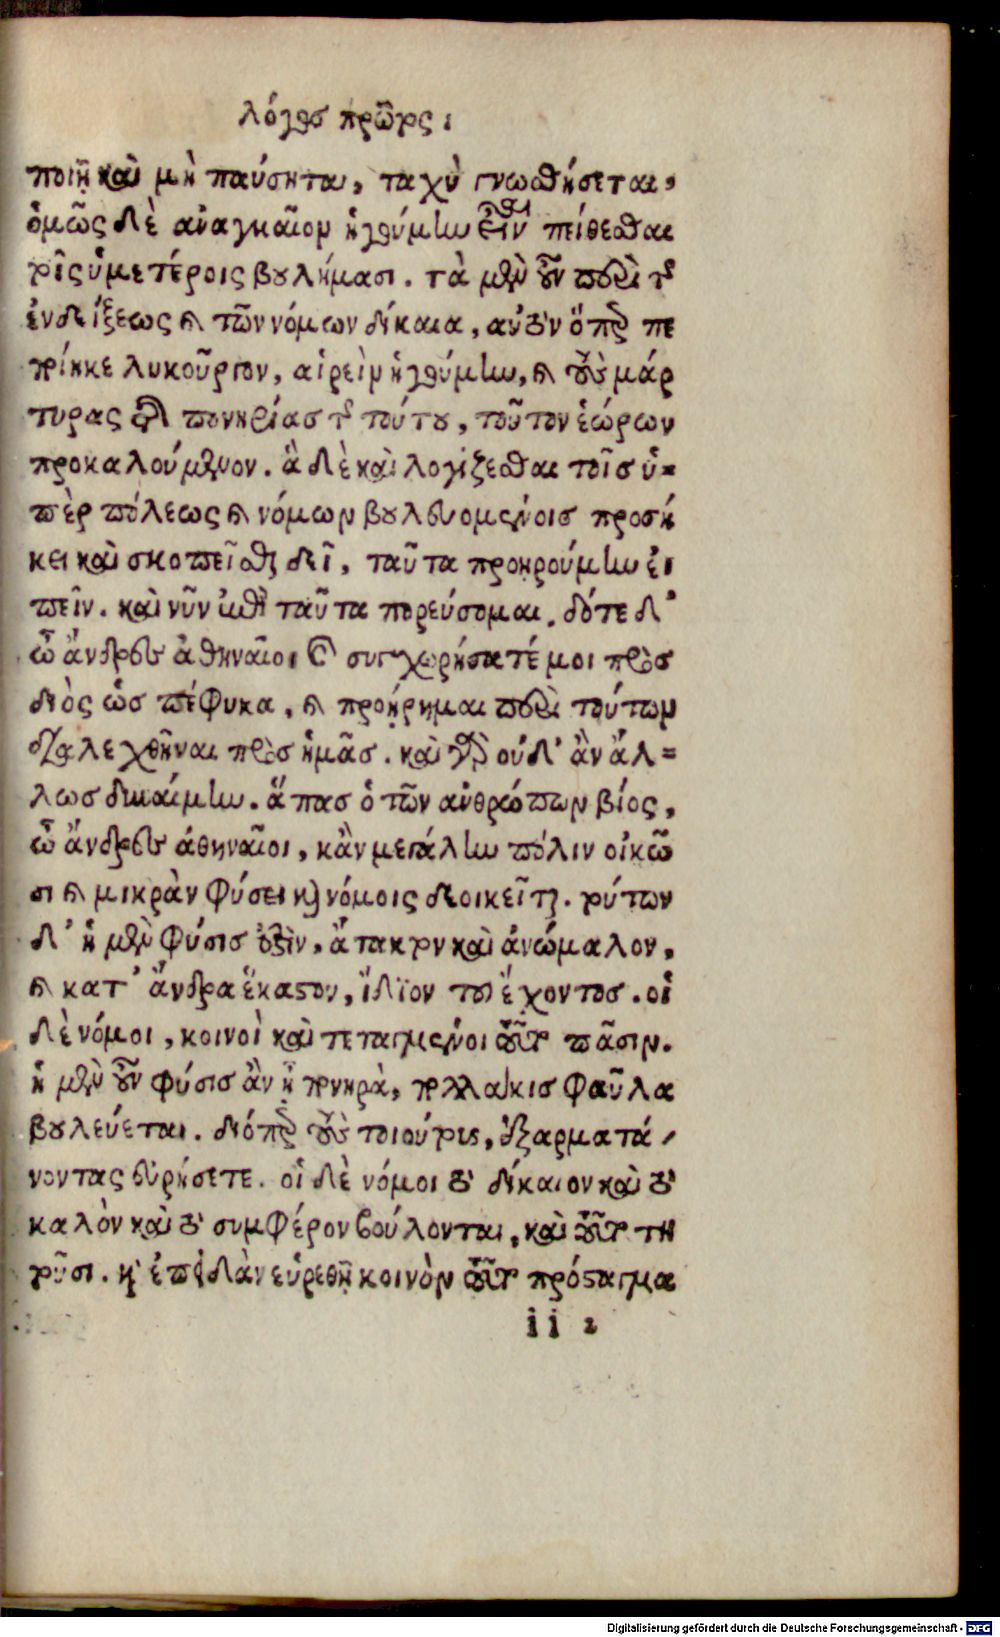 λόγος πρῶτος.
ποιῇ καὶ μὴ παύσηται, ταχὺ γνωσθήσεται,
ὅμως δὲ ἀναγκαῖον ἡγούμην εἶν πείθεσθαι
τοῖς ὑμετέροις βουλήμασι. τὰ μὲν οὖν περὶ τῆς
ἐνδείξεως καὶ τῶν νόμων δίκαια, αὐτὸν ὅπερ πε
ποίηκε λυκοῦργον, αἱρεῖν ἡγούμην, καὶ τοὺς μάρ
τυρας ἐπὶ πονηρίας τῆς τούτου, τοῦτον ἑώρων
προκαλούμενον. ἃ δὲ καὶ λογίζεσθαι τοῖς ὑ-
πὲρ πόλεως καὶ νόμων βουλευομένοις προσή
κει καὶ σκοπεῖσθαι δεῖ, ταῦτα προῃρούμην εἰ
πεῖν. καὶ νῦν ἐπὶ ταῦτα πορεύσομαι. δότε δ'
ὦ ἄνδρες ἀθηναῖοι καὶ συγχωρήσατέ μοι πρὸς
διὸς ὡς πέφυκα, καὶ προῄρημαι περὶ τούτων
διαλεχθῆναι πρὸς ἡμᾶς. καὶ γὰρ οὐδ' ἂν ἄλ-
λως δυναίμην. ἅπας ὁ τῶν ἀνθρώπων βίος,
ὦ ἄνδρες ἀθηναῖοι, κἂν μεγάλην πόλιν οἰκῶ
σι καὶ μικρὰν φύσει καὶ νόμοις διοικεῖται. τούτων
δ' ἡ μὲν φύσις ἐστὶν, ἄτακτον καὶ ἀνώμαλον,
καὶ κατ' ἄνδρα ἕκαστον, ἴδϊον τοῦ ἔχοντος. οἱ
δὲ νόμοι, κοινοὶ καὶ τεταγμένοι ταυτὸ πᾶσιν.
ἡ μὲν οὖν φύσις ἂν ᾖ πονηρὰ, πολλάκις φαῦλα
βουλεύεται. διόπερ τοὺς τοιούτους, ἐξαρματά-
νοντας εὑρήσετε. οἱ δὲ νόμοι τὸ δίκαιον καὶ τὸ
καλὸν καὶ τὸ συμφέρον βούλονται, καὶ τοῦτο ζη
τοῦσι. καὶ ἐπειδὰν εὑρεθῇ κοινὸν τοῦτο πρόσταγμα
ii 2
Digitalisierung gefördert durch die Deutsche Forschungsgemeinschaft - DFG